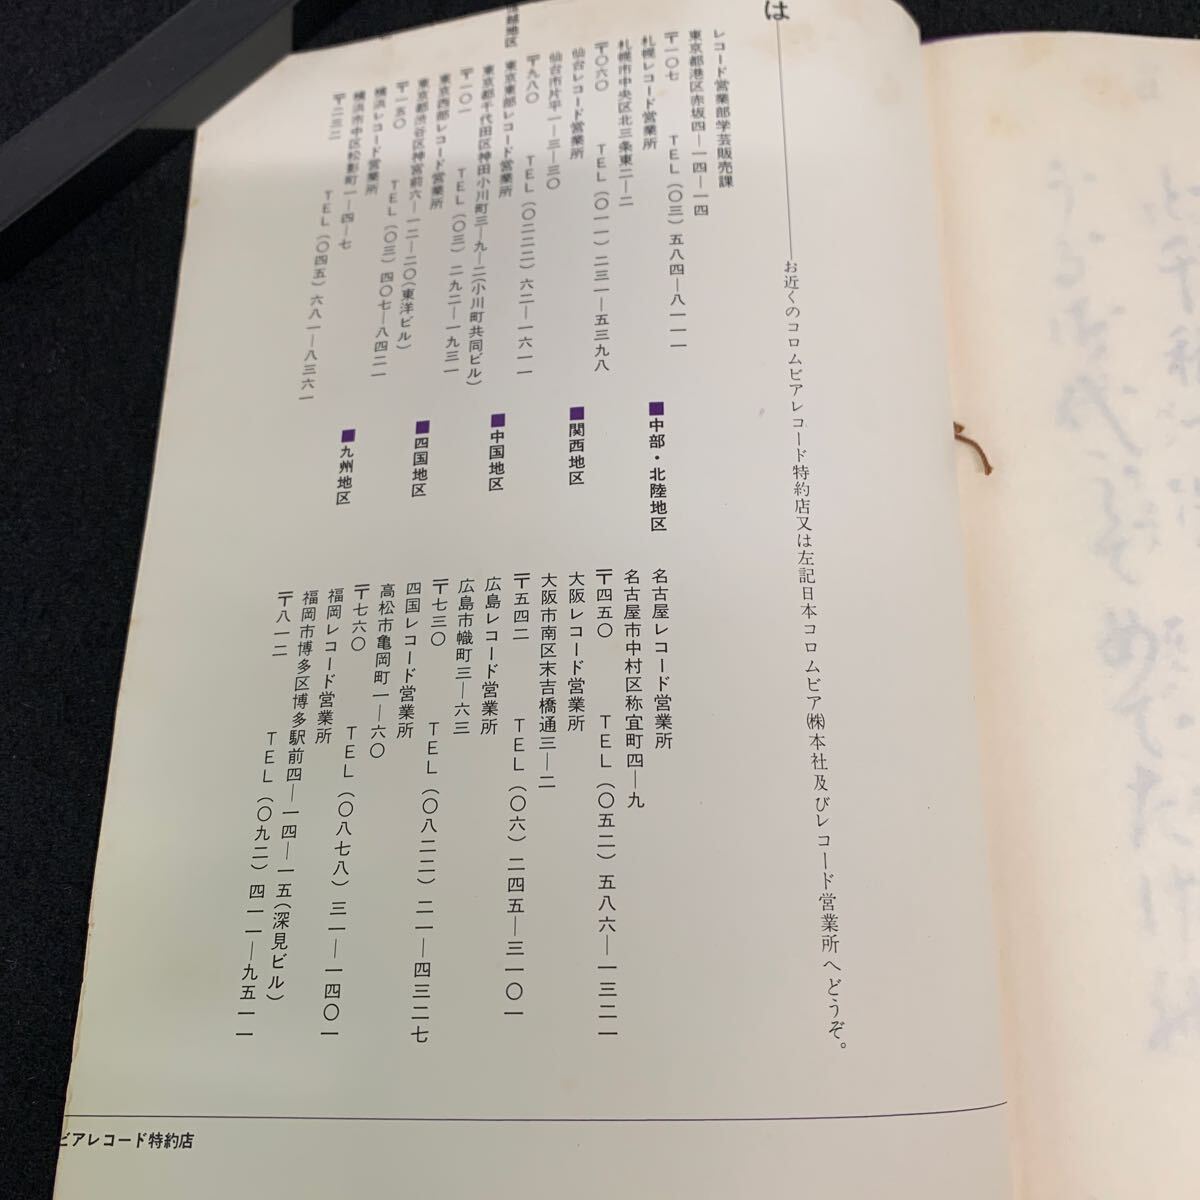 は
お近くのコロムビアレコード特約店又は左記日本コロムビア㈱本社及びレコード営業所へどうぞ。
レコード営業部学芸販売課
東京都港区赤坂四―一四―一四
〒一〇七 TEL(〇三)五八四―八一一一
札幌レコード営業所
札幌市中央区北三条東二―二
〒〇六〇 TEL(〇一一)二三一―五三九八
仙台レコード営業所
仙台市片平一―三―三〇
〒九八〇 TEL(〇二二二)六二―一六一一
越地区
東京東部レコード営業所
東京都千代田区神田小川町三―九―二(小川町共同ビル)
〒一〇一 TEL(〇三)二九二―一九三一
東京西部レコード営業所
東京都渋谷区神宮前六―一二―二〇(東洋ビル)
〒一五〇 TEL(〇三)四〇七―八四二一
横浜レコード営業所
横浜市中区松影町一―四―七
〒二三二 TEL(〇四五)六八一―八三六一
■中部・北陸地区
名古屋レコード営業所
名古屋市中村区称宜町四―九
〒四五〇 TEL(〇五二)五八六―一三二一
■関西地区
大阪レコード営業所
大阪市南区末吉橋通三―二
〒五四二 TEL(〇六)二四五―三一〇一
■中国地区
広島レコード営業所
広島市幟町三―六三
〒七三〇 TEL(〇八二二)二一―四三二七
■四国地区
四国レコード営業所
高松市亀岡町一―六〇
〒七六〇 TEL(〇八七八)三一―一四〇一
■九州地区
福岡レコード営業所
福岡市博多区博多駅前四―一四―一五(深見ビル)
〒八一二 TEL(〇九二)四一一―九五一一
ビアレコード特約店